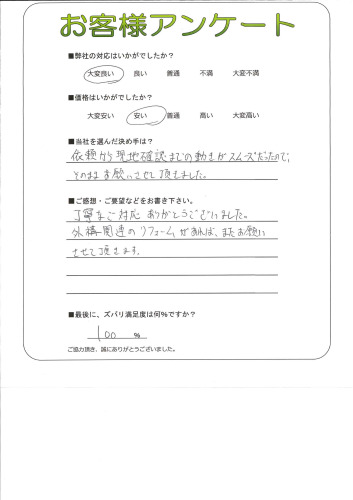 お客様アンケート
■弊社の対応はいかがでしたか？
大変良い 良い 普通 不満 大変不満
■価格はいかがでしたか？
大変安い 安い 普通 高い 大変高い
■当社を選んだ決め手は？
依頼から現地確認までの動きがスムーズだったので、
そのままお願いさせて頂きました。
■ご感想・ご要望などをお書き下さい。
丁寧なご対応ありがとうございました。
外構関連のリフォームがあれば、またお願い
させて頂きます。
■最後に、ズバリ満足度は何%ですか？
100 %
ご協力頂き、誠にありがとうございました。